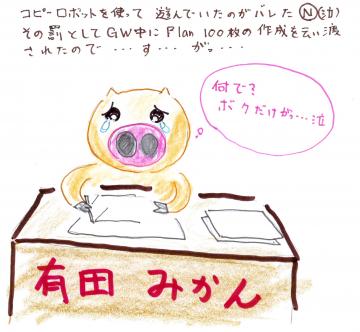 コピーロボットを使って 遊んでいたのがバレた Ⓝ(泣)
その罰としてGW中に Plan 100枚の作成を云い渡
されたので ・・・す・・・ が。・・・
何で?
ボクだけがっ・・・泣
有田 みかん